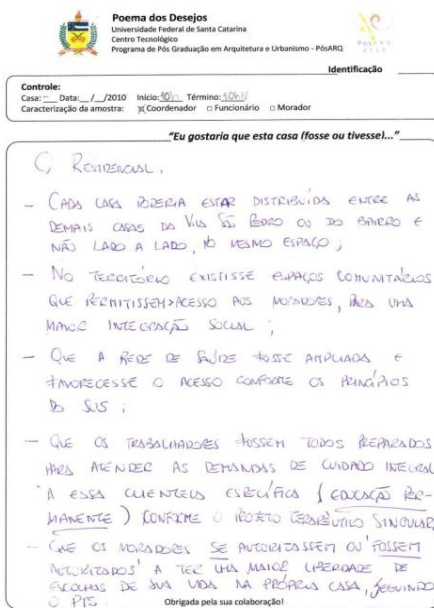 Poema dos Desejos
Universidade Federal de Santa Catarina
Centro Tecnológico
Programa de Pós Graduação em Arquitetura e Urbanismo - PósARQ
Identificação
Controle:
Casa: — Data:__/__/2010 Início: 10h Término: 10h15
Caracterização da amostra: Coordenador Funcionário Morador
"Eu gostaria que esta casa (fosse ou tivesse)..."
O RESIDENCIAL,
- CADA CASA PODERIA ESTAR DISTRIBUIDA ENTRE AS
DEMAIS CASAS DA VILA SÃO PEDRO OU DO BAIRRO E
NÃO LADO A LADO, NO MESMO ESPAÇO;
- NO TERRITÓRIO EXISTISSE ESPAÇOS COMUNITÁRIOS
QUE PERMITISSEM ACESSO AOS MORADORES, PARA UMA
MAIOR INTEGRAÇÃO SOCIAL;
- QUE A REDE DE SAÚDE FOSSE AMPLIADA E
FAVORECESSE O ACESSO CONFORME OS PRINCÍPIOS
DO SUS;
- QUE OS TRABALHADORES FOSSEM TODOS PREPARADOS
PARA ATENDER AS DEMANDAS DE CUIDADO INTEGRAL
A ESSA CLIENTELA ESPECÍFICA (EDUCAÇÃO PER-
MANENTE) CONFORME O PROJETO TERAPÊUTICO SINGULAR
- QUE OS MORADORES SE AUTORIZASSEM OU 'FOSSEM
AUTORIZADOS' A TER UMA MAIOR LIBERDADE DE
ESCOLHAS DE SUA VIDA NA PRÓPRIA CASA, SEGUINDO
O PTS.
Obrigada pela sua colaboração!